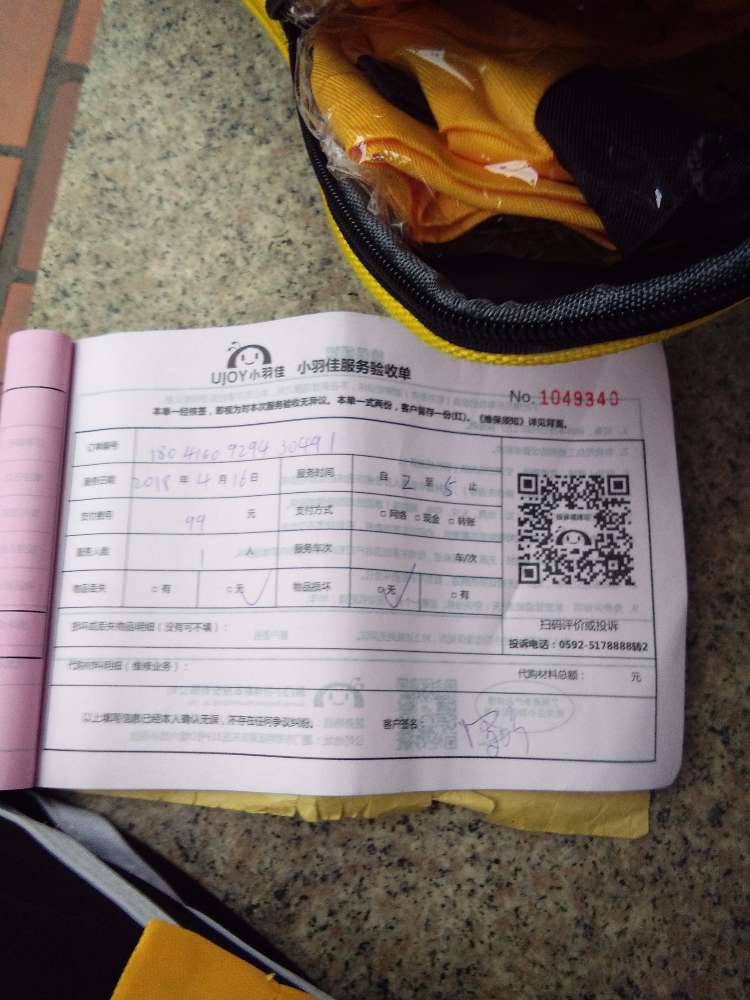 UJOY小羽佳 小羽佳服务验收单
No. 1049340
本单一经核签，即视为对本次服务验收无异议。本单一式两份，客户留存一份(红)。《维保须知》详见背面。
订单编号 180416092943 0491
服务日期 2018 年 4 月 16 日 服务时间 自 2 至 5 止
支付费用 99 元 支付方式 □网络 □现金 □转账
服务人数 1 人 服务车次 车/次
物品丢失 □有 □无 物品损坏 □无 □有
扫码评价或投诉
损坏或丢失物品明细（没有可不填）： 投诉电话：0592-5178888转2
代购材料明细（维修业务）： 代购材料总额： 元
以上填写信息已经本人确认无误，不存在任何争议纠纷。 客户签名：